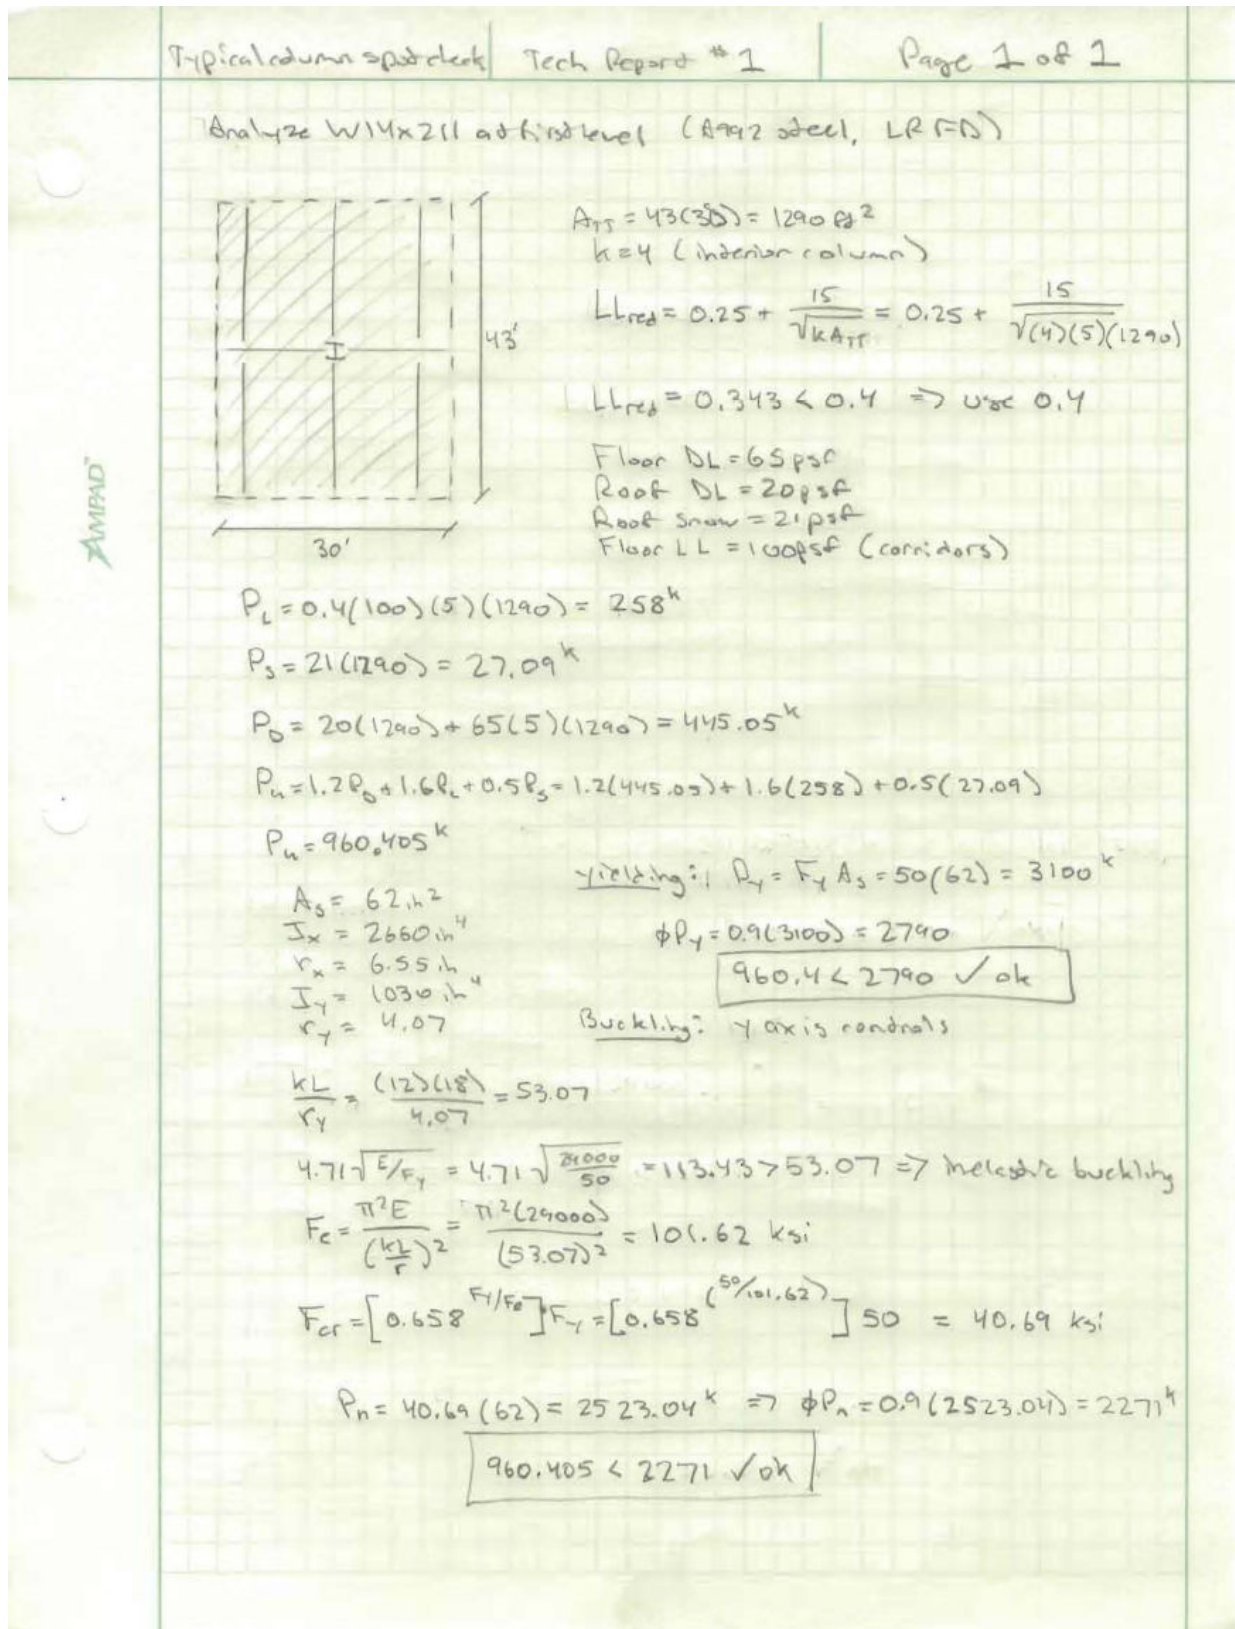 Typical column spot check
Tech Report #1
Page 1 of 1
Analyze W14x211 at first level (A992 steel, LRFD)
A_TT = 43(30) = 1290 ft²
k=4 (interior column)
LLred = 0.25 + 15/√(kA_TT) = 0.25 + 15/√((4)(5)(1290))
43'
LLred = 0.343 < 0.4 => use 0.4
Floor DL = 65psf
Roof DL = 20psf
Roof Snow = 21psf
Floor LL = 100psf (corridors)
30'
AMPAD™
P_L = 0.4(100)(5)(1290) = 258^k
P_S = 21(1290) = 27.09^k
P_D = 20(1290) + 65(5)(1290) = 445.05^k
P_u = 1.2P_D + 1.6P_L + 0.5P_S = 1.2(445.05) + 1.6(258) + 0.5(27.09)
P_u = 960.405^k
A_s = 62in²
I_x = 2660in⁴
r_x = 6.55in
I_y = 1030in⁴
r_y = 4.07
yielding: P_y = F_y A_s = 50(62) = 3100^k
φP_y = 0.9(3100) = 2790
960.4 < 2790 ✓ ok
Buckling: y axis controls
kL/r_y = (12)(18)/4.07 = 53.07
4.71√(E/F_y) = 4.71√(29000/50) = 113.43 > 53.07 => inelastic buckling
F_e = π²E/(kL/r)² = π²(29000)/(53.07)² = 101.62 ksi
F_cr = [0.658^(Fy/Fe)]F_y = [0.658^(50/101.62)] 50 = 40.69 ksi
P_n = 40.69(62) = 2523.04^k => φP_n = 0.9(2523.04) = 2271^k
960.405 < 2271 ✓ ok